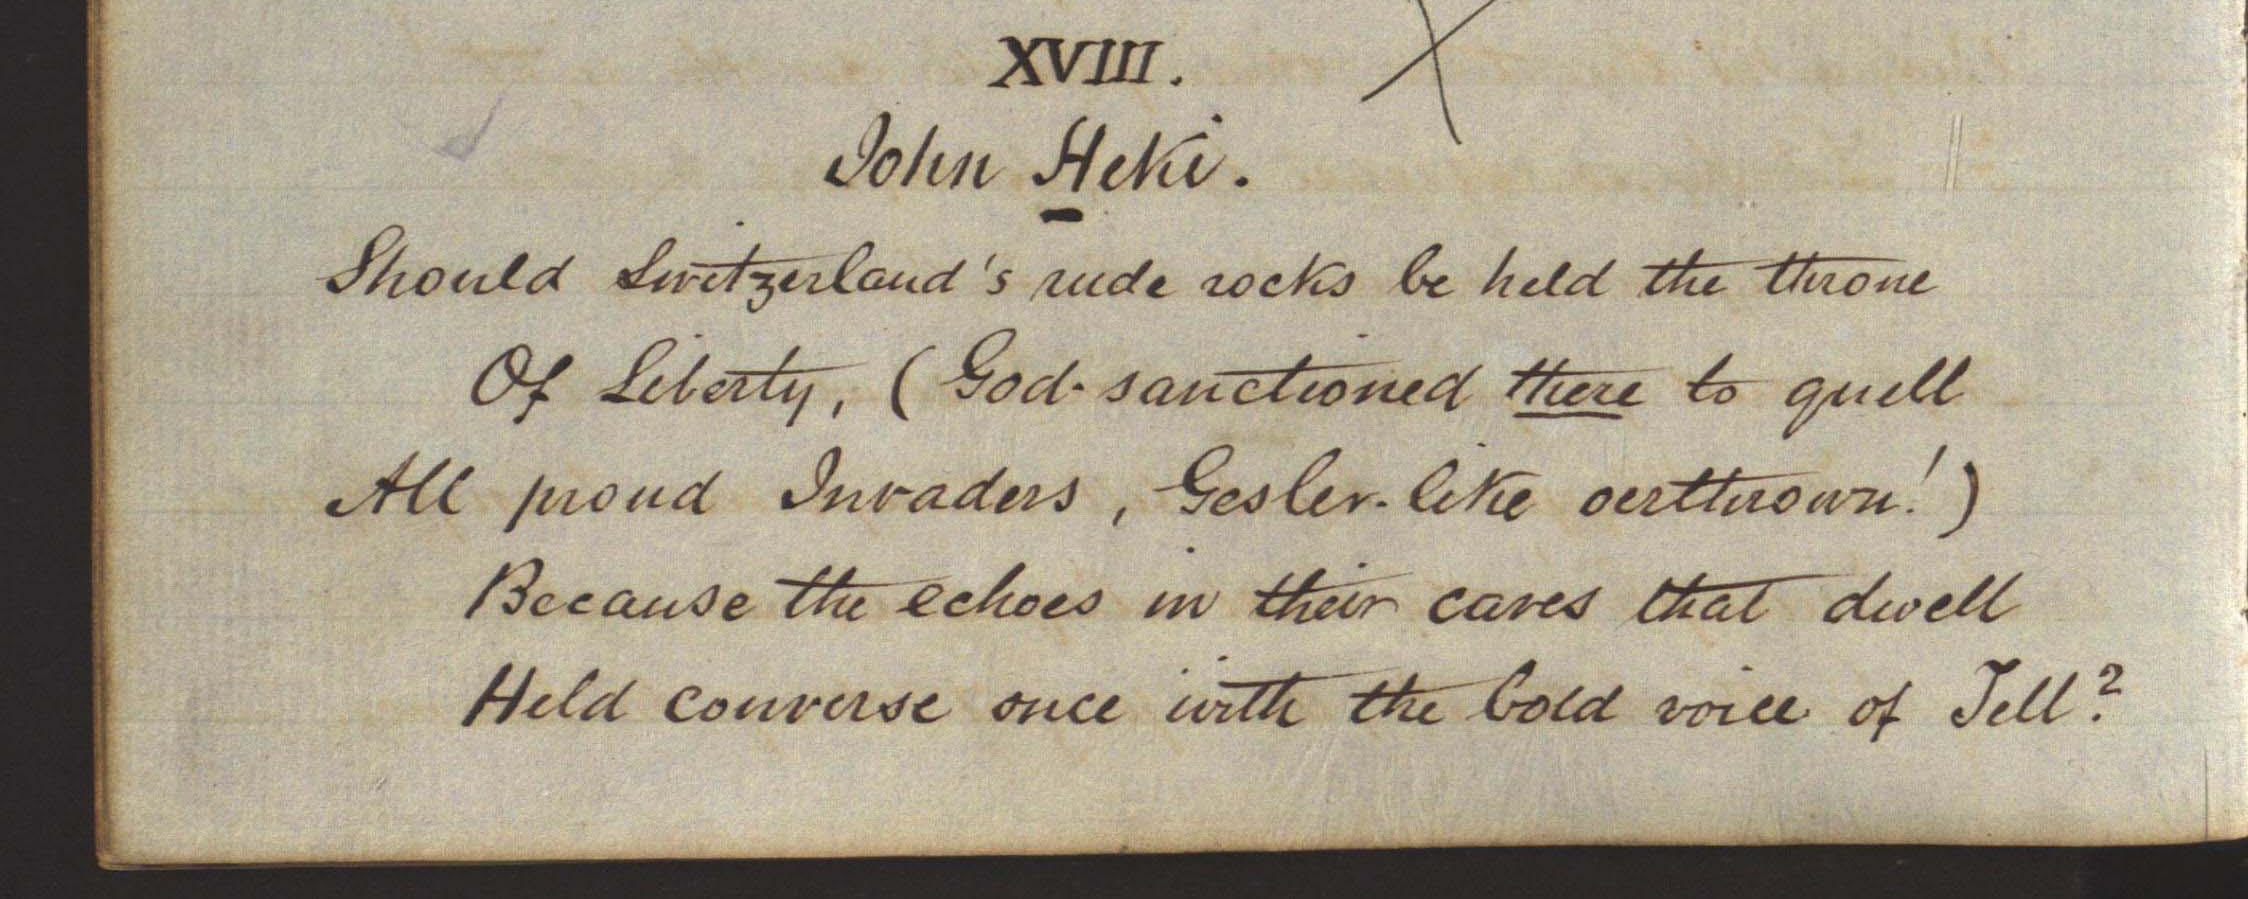 XVIII.
John Heki.
Should Switzerland's rude rocks be held the throne
Of Liberty, (God-sanctioned there to quell
All proud Invaders, Gesler-like oerthrown!)
Because the echoes in their caves that dwell
Held converse once with the bold voice of Tell?